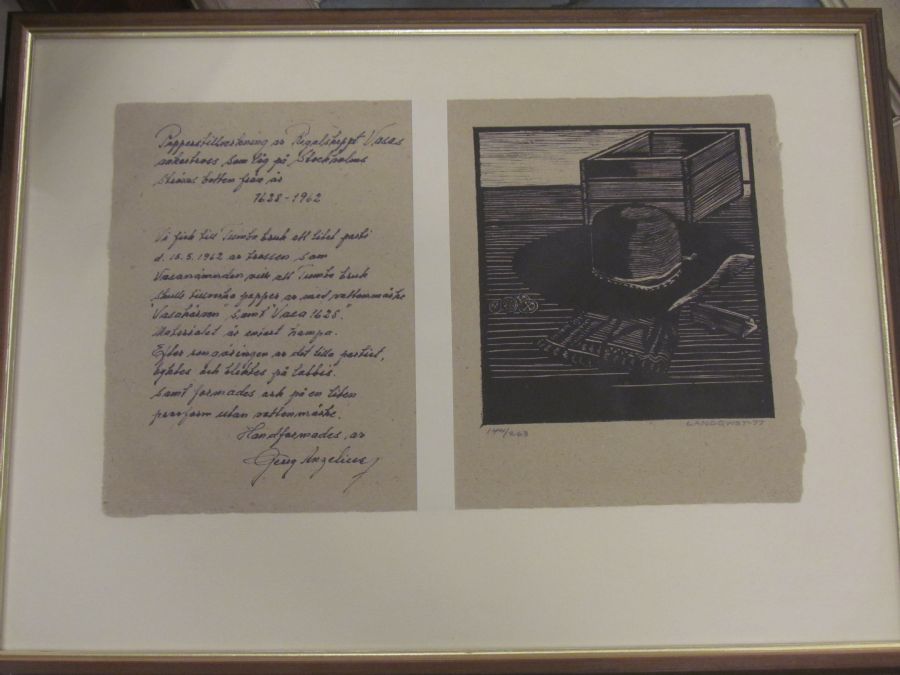 Papperstillverkning av Regalskeppet Vasas
ankartross, som låg på Stockholms
Ströms botten från år
1628-1962
Vi fick till Tumba bruk ett litet parti
d. 15.5.1962 av trossen, som
Vasanämnden att Tumba bruk
skulle tillverka papper av med vattenmärke
"Vasakärven" samt "Vasa 1628".
Materialet är enbart hampa.
Efter rengöringen av det lilla partiet,
koktes och blektes på labbis.
samt formades ark på en liten
provform utan vattenmärke.
Handformades, av
Georg Angelius
140/263
LANDQVIST-77